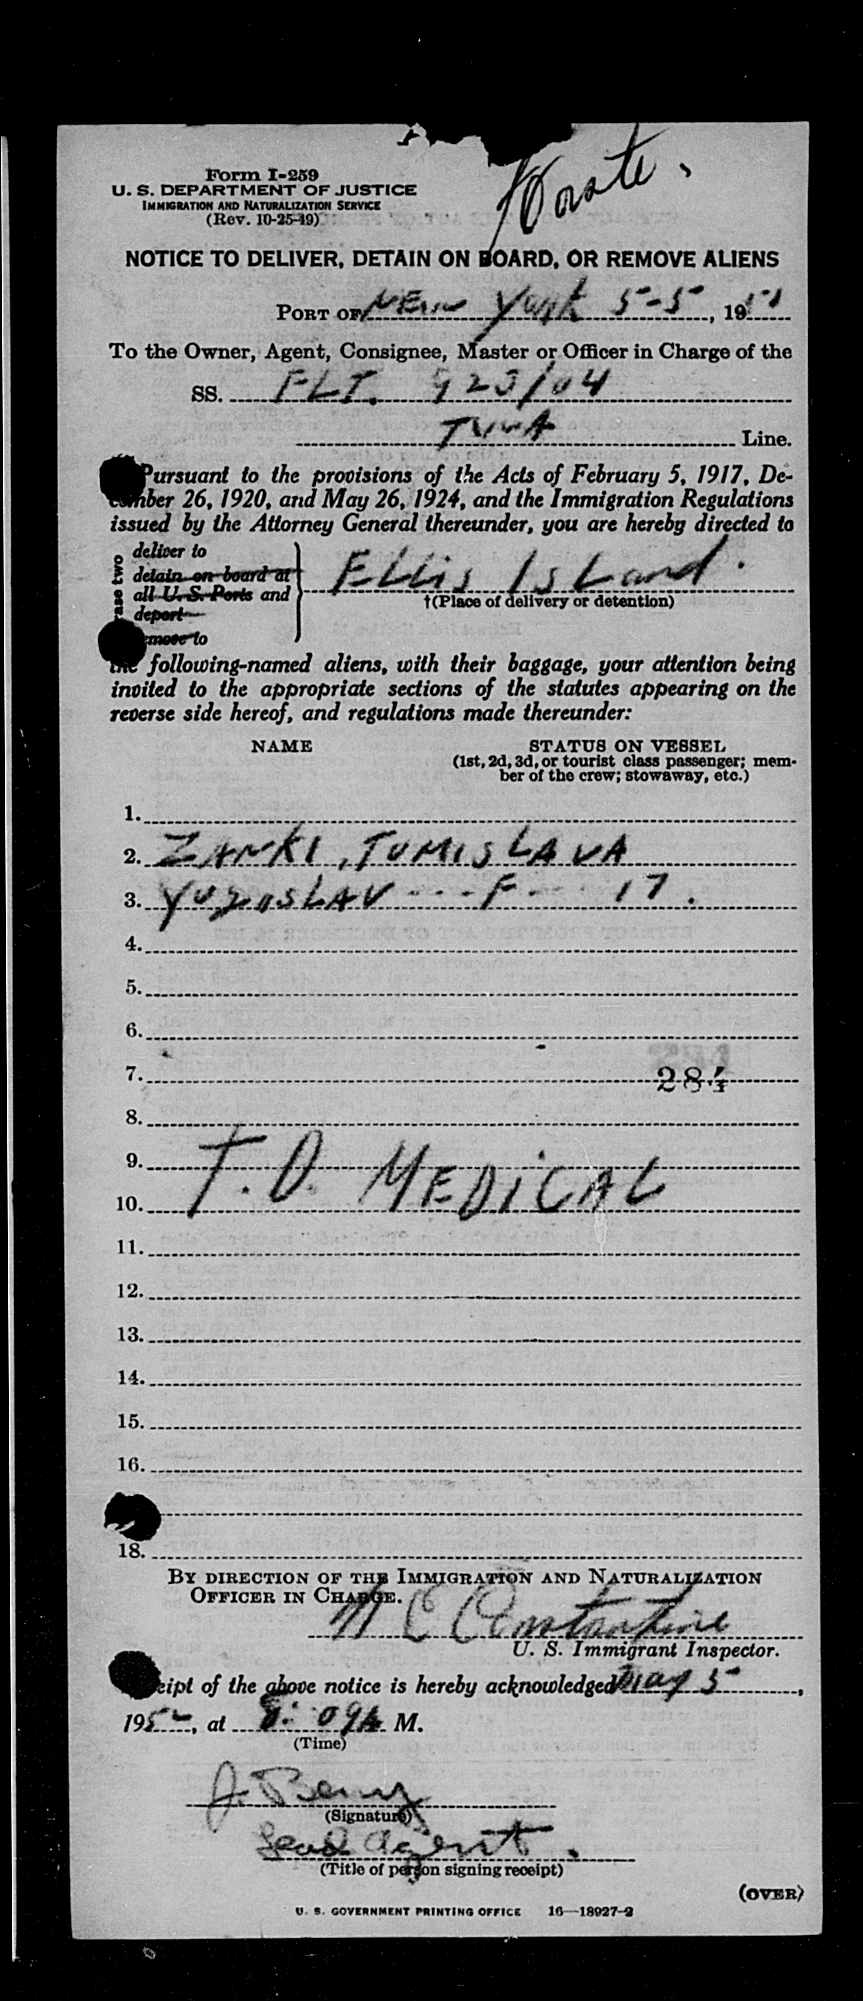 Form I-259
U. S. DEPARTMENT OF JUSTICE
IMMIGRATION AND NATURALIZATION SERVICE
(Rev. 10-25-49)
NOTICE TO DELIVER, DETAIN ON BOARD, OR REMOVE ALIENS
PORT OF New York 5-5, 1951
To the Owner, Agent, Consignee, Master or Officer in Charge of the
SS. FLT. 923/04
TWA Line.
Pursuant to the provisions of the Acts of February 5, 1917, De-
cember 26, 1920, and May 26, 1924, and the Immigration Regulations
issued by the Attorney General thereunder, you are hereby directed to
deliver to
detain on board at
all U. S. Ports and
deport
remove to
ELLIS ISLAND.
†(Place of delivery or detention)
the following-named aliens, with their baggage, your attention being
invited to the appropriate sections of the statutes appearing on the
reverse side hereof, and regulations made thereunder:
NAME STATUS ON VESSEL
(1st, 2d, 3d, or tourist class passenger; mem-
ber of the crew; stowaway, etc.)
1.
2. ZANKI, TOMISLAVA
3. YUGOSLAV --- F -- 17.
4.
5.
6.
7. 284
8.
9.
10. T.D. MEDICAL
11.
12.
13.
14.
15.
16.
18.
BY DIRECTION OF THE IMMIGRATION AND NATURALIZATION
OFFICER IN CHARGE.
Constantine
U. S. Immigrant Inspector.
Receipt of the above notice is hereby acknowledged May 5,
195, at 8:09 A M.
(Time)
J. Berry
(Signature)
Lead Agent.
(Title of person signing receipt)
(OVER)
U. S. GOVERNMENT PRINTING OFFICE 16—18927-2